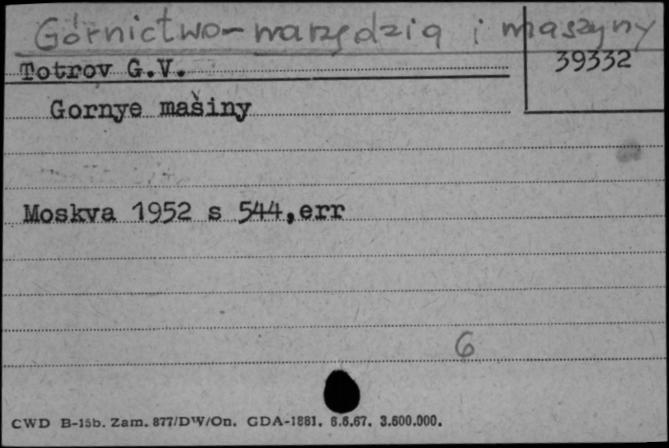 Górnictwo-narzędzia i maszyny
39332
Totrov G.V.
Gornye mašiny
Moskva 1952 s 544,err
6
CWD B-15b. Zam. 877/DW/On. GDA-1881. 6.6.67. 3.600.000.